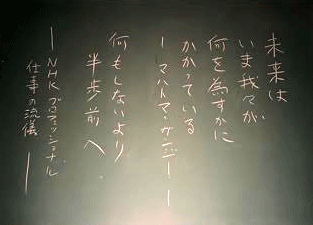 未来は
いま我々が
何を為すかに
かかっている
ーマハトマ・ガンジーー
何もしないより
半歩前へ
ーNHKプロフェッショナル
仕事の流儀ー